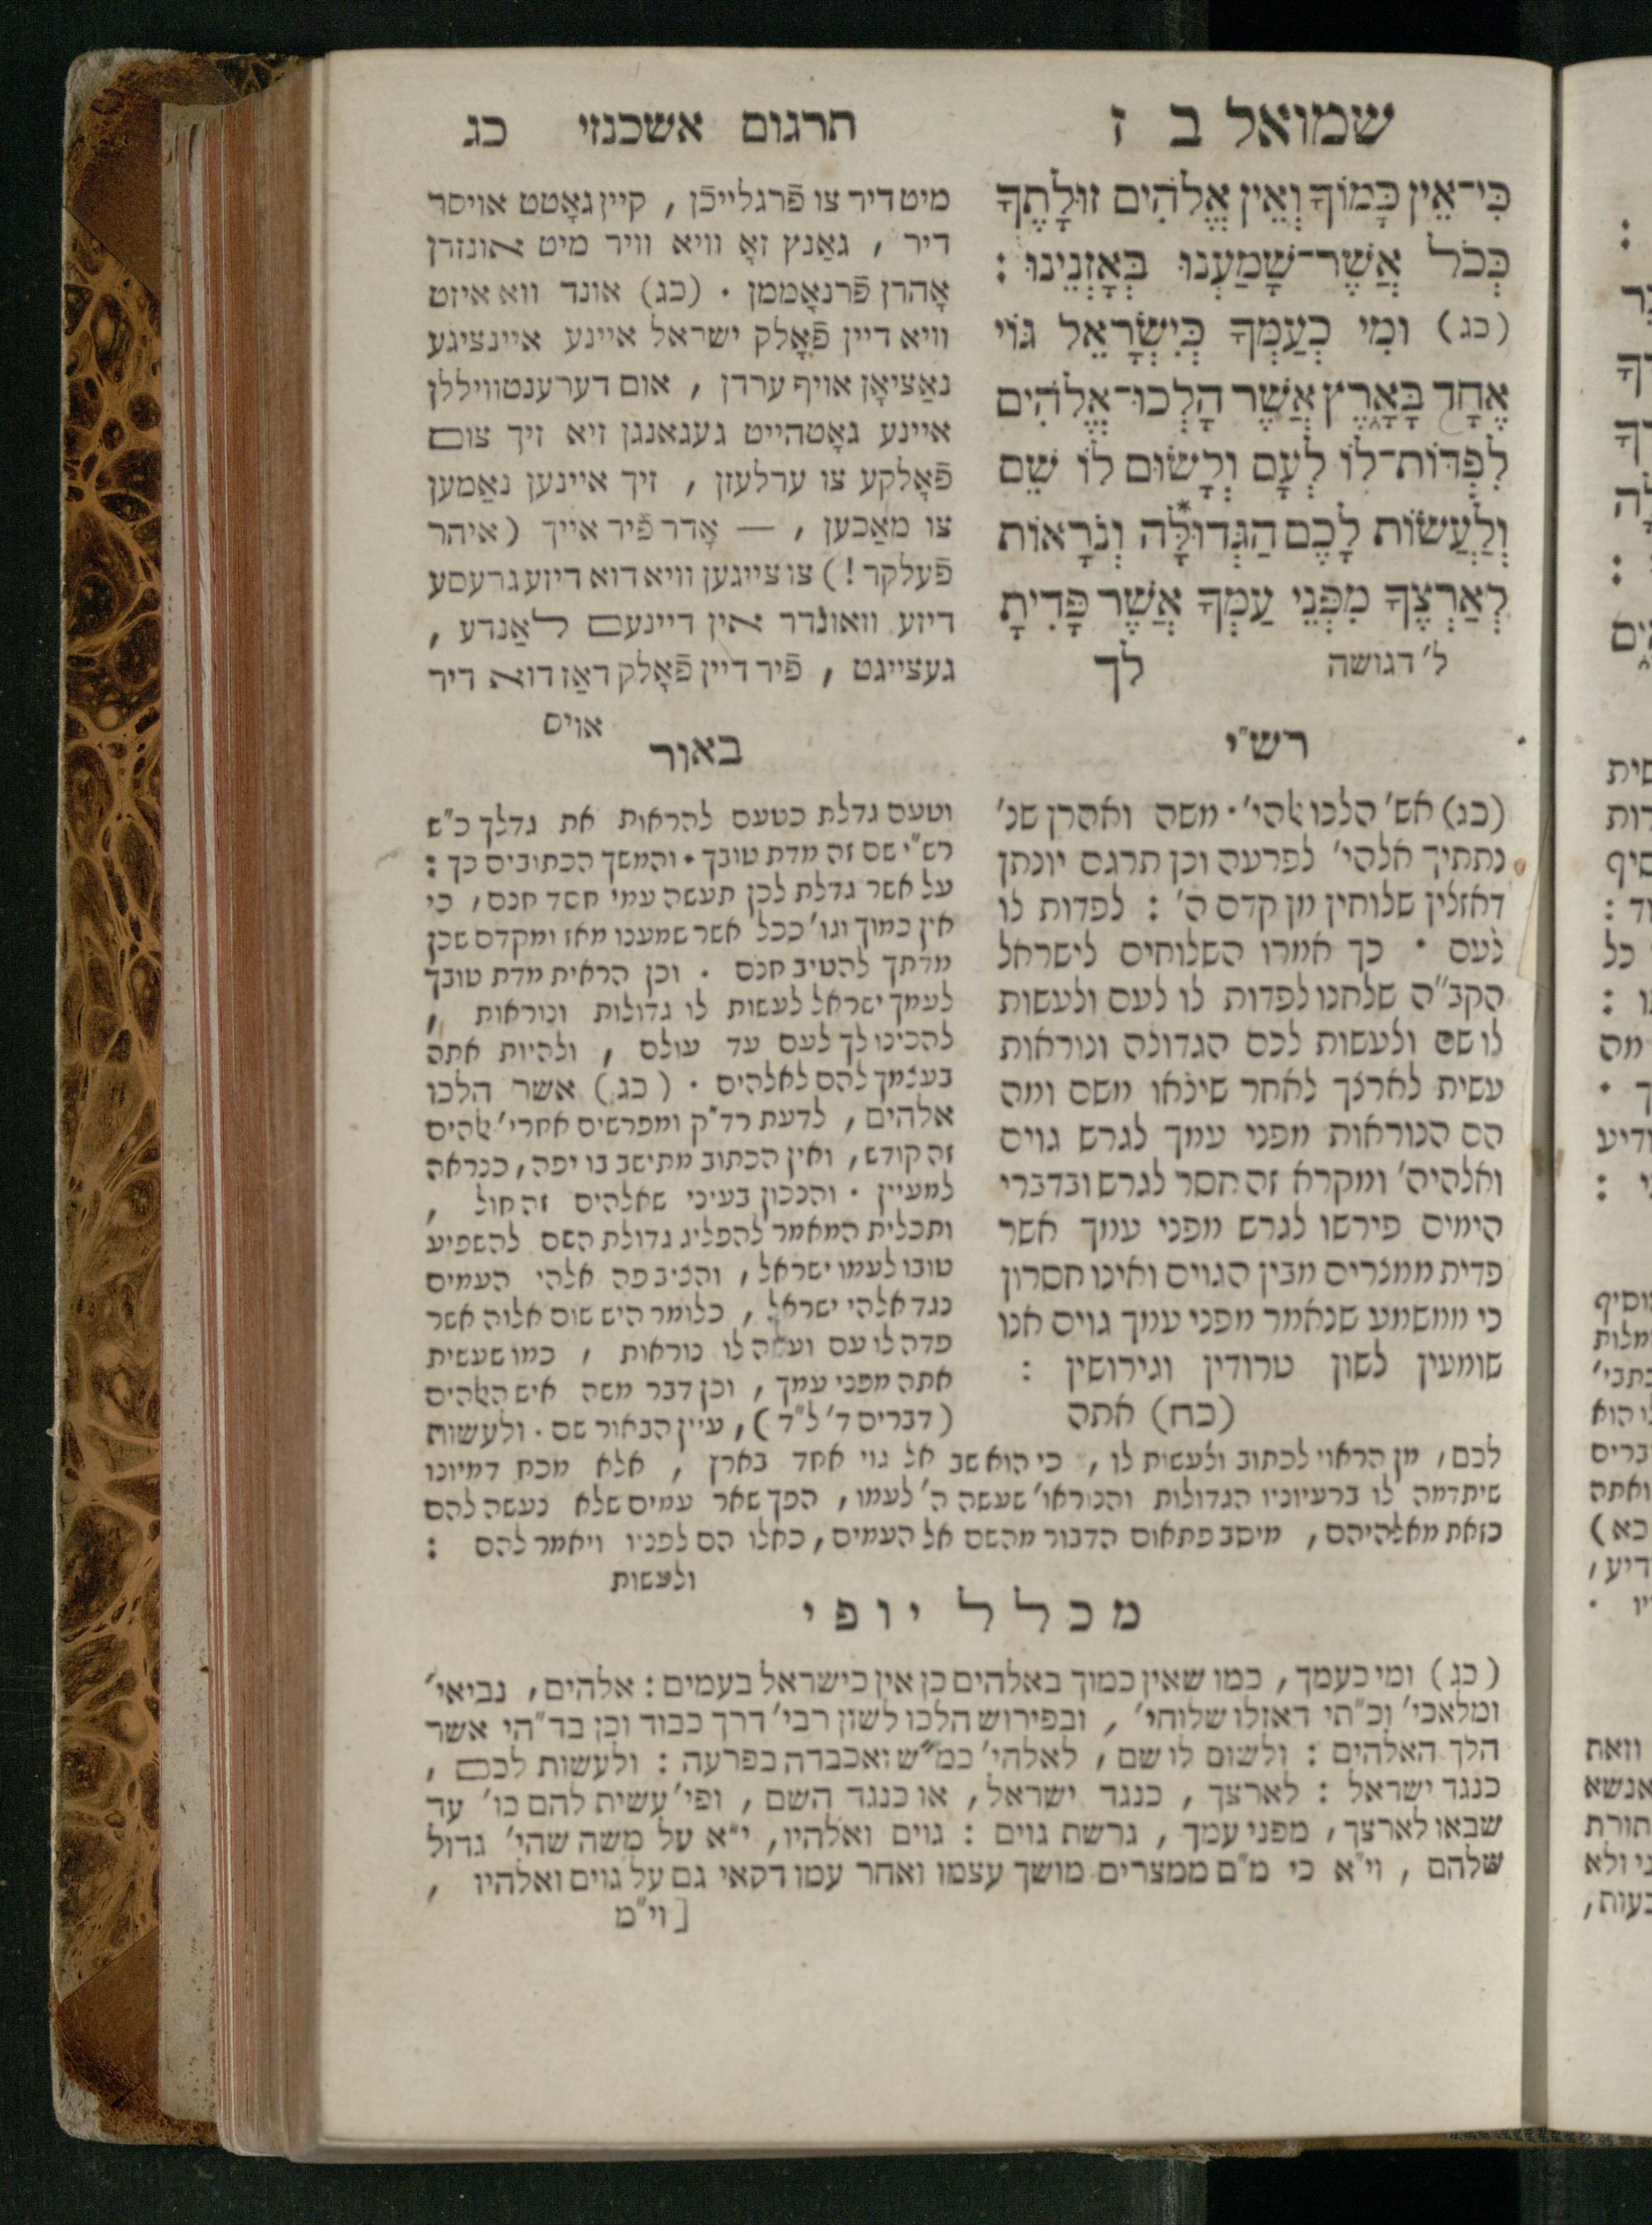 שמואל ב ז
תרגום אשכנזי כג
כִּי־אֵין כָּמוֹךָ וְאֵין אֱלֹהִים זוּלָתֶךָ
בְּכֹל אֲשֶׁר־שָׁמַעְנוּ בְּאָזְנֵינוּ :
(כג) וּמִי כְעַמְּךָ כְּיִשְׂרָאֵל גּוֹי
אֶחָד בָּאָרֶץ אֲשֶׁר הָלְכוּ־אֱלֹהִים
לִפְדּוֹת־לוֹ לְעָם וְלָשׂוּם לוֹ שֵׁם
וְלַעֲשׂוֹת לָכֶם הַגְּדוּלָּ*ה וְנֹרָאוֹת
לְאַרְצֶךָ מִפְּנֵי עַמְּךָ אֲשֶׁר פָּדִיתָ
ל׳ דגושה לך
מיט דיר צו פֿרגלייכֿן , קיין גאָטט אויסר
דיר , גאַנץ זאָ וויא וויר מיט אונזרן
אָהרן פֿרנאָממן . (כג) אונד ווא איזט
וויא דיין פֿאָלק ישראל איינע איינציגע
נאַציאָן אויף ערדן , אום דערענטוויללן
איינע גאָטהייט געגאנגן זיא זיך צום
פֿאָלקע צו ערלעזן , זיך איינען נאַמען
צו מאַכען , — אָדר פֿיר אייך (איהר
פֿעלקר !) צו צייגען וויא דוא דיזע גרעסע
דיזע וואונדר אין דיינעם לאַנדע ,
געצייגט , פֿיר דיין פֿאָלק דאַז דוא דיר
אויס
רש״י
(כג) אש׳ הלכו אלהי׳ . משה ואהרן שנ׳
נתתיך אלהי׳ לפרעה וכן תרגם יונתן
דאזלין שלוחין מן קדם ה׳ : לפדות לו
לעם . כך אמרו השלוחים לישראל
הקב״ה שלחנו לפדות לו לעם ולעשות
לו שם ולעשות לכם הגדולה ונוראות
עשית לארצך לאחר שיצאו משם ומה
הם הנוראות מפני עמך לגרש גוים
ואלהיה׳ ומקרא זה חסר לגרש ובדברי
הימים פירשו לגרש מפני עמך אשר
פדית ממצרים מבין הגוים ואינו חסרון
כי ממשמע שנאמר מפני עמך גוים אנו
שומעין לשון טרודין וגירושין :
(כח) אתה
באור
וטעם גדלת כטעם להראות את גדלך כ״ש
רש״י שם זה מדת טובך . והמשך הכתובים כך :
על אשר גדלת לכן תעשה עמי חסד חנם , כי
אין כמוך וגו׳ ככל אשר שמענו מאז ומקדם שכן
מדתך להטיב חנם . וכן הראית מדת טובך
לעמך ישראל לעשות לו גדולות ונוראות ,
להכינו לך לעם עד עולם , ולהיות אתה
בעצמך להם לאלהים . (כג) אשר הלכו
אלהים , לדעת רד״ק ומפרשים אחרי׳ אלהים
זה קודש , ואין הכתוב מתישב בו יפה , כנראה
למעיין . והנכון בעיני שאלהים זה חול ,
ותכלית המאמר להפליג גדולת השם להשפיע
טובו לעמו ישראל , והציב פה אלהי העמים
כנגד אלהי ישראל , כלומר היש שום אלוה אשר
פדה לו עם ועשה לו נוראות , כמו שעשית
אתה מפני עמך , וכן דבר משה איש האלהים
(דברים ד׳ ל״ד) , עיין הבאור שם . ולעשות
לכם , מן הראוי לכתוב ולעשות לו , כי הוא שב אל גוי אחד בארץ , אלא מכח דמיונו
שיתדמה לו ברעיוניו הגדולות והנוראו׳ שעשה ה׳ לעמו , הפך שאר עמים שלא נעשה להם
כזאת מאלהיהם , מיסב פתאום הדבור מהשם אל העמים , כאלו הם לפניו ויאמר להם :
ולעשות
מכלל יופי
(כג) ומי כעמך , כמו שאין כמוך באלהים כן אין כישראל בעמים : אלהים , נביאי׳
ומלאכי׳ וכ״תי דאזלו שלוחי׳ , ובפירוש הלכו לשון רבי׳ דרך כבוד וכן בד״הי אשר
הלך האלהים : ולשום לו שם , לאלהי׳ כמ״ש ואכבדה בפרעה : ולעשות לכם ,
כנגד ישראל : לארצך , כנגד ישראל , או כנגד השם , ופי׳ עשית להם כו׳ עד
שבאו לארצך , מפני עמך , גרשת גוים : גוים ואלהיו , י״א על משה שהי׳ גדול
שלהם , וי״א כי מ״ם ממצרים מושך עצמו ואחר עמו דקאי גם על גוים ואלהיו ,
[ וי״מ